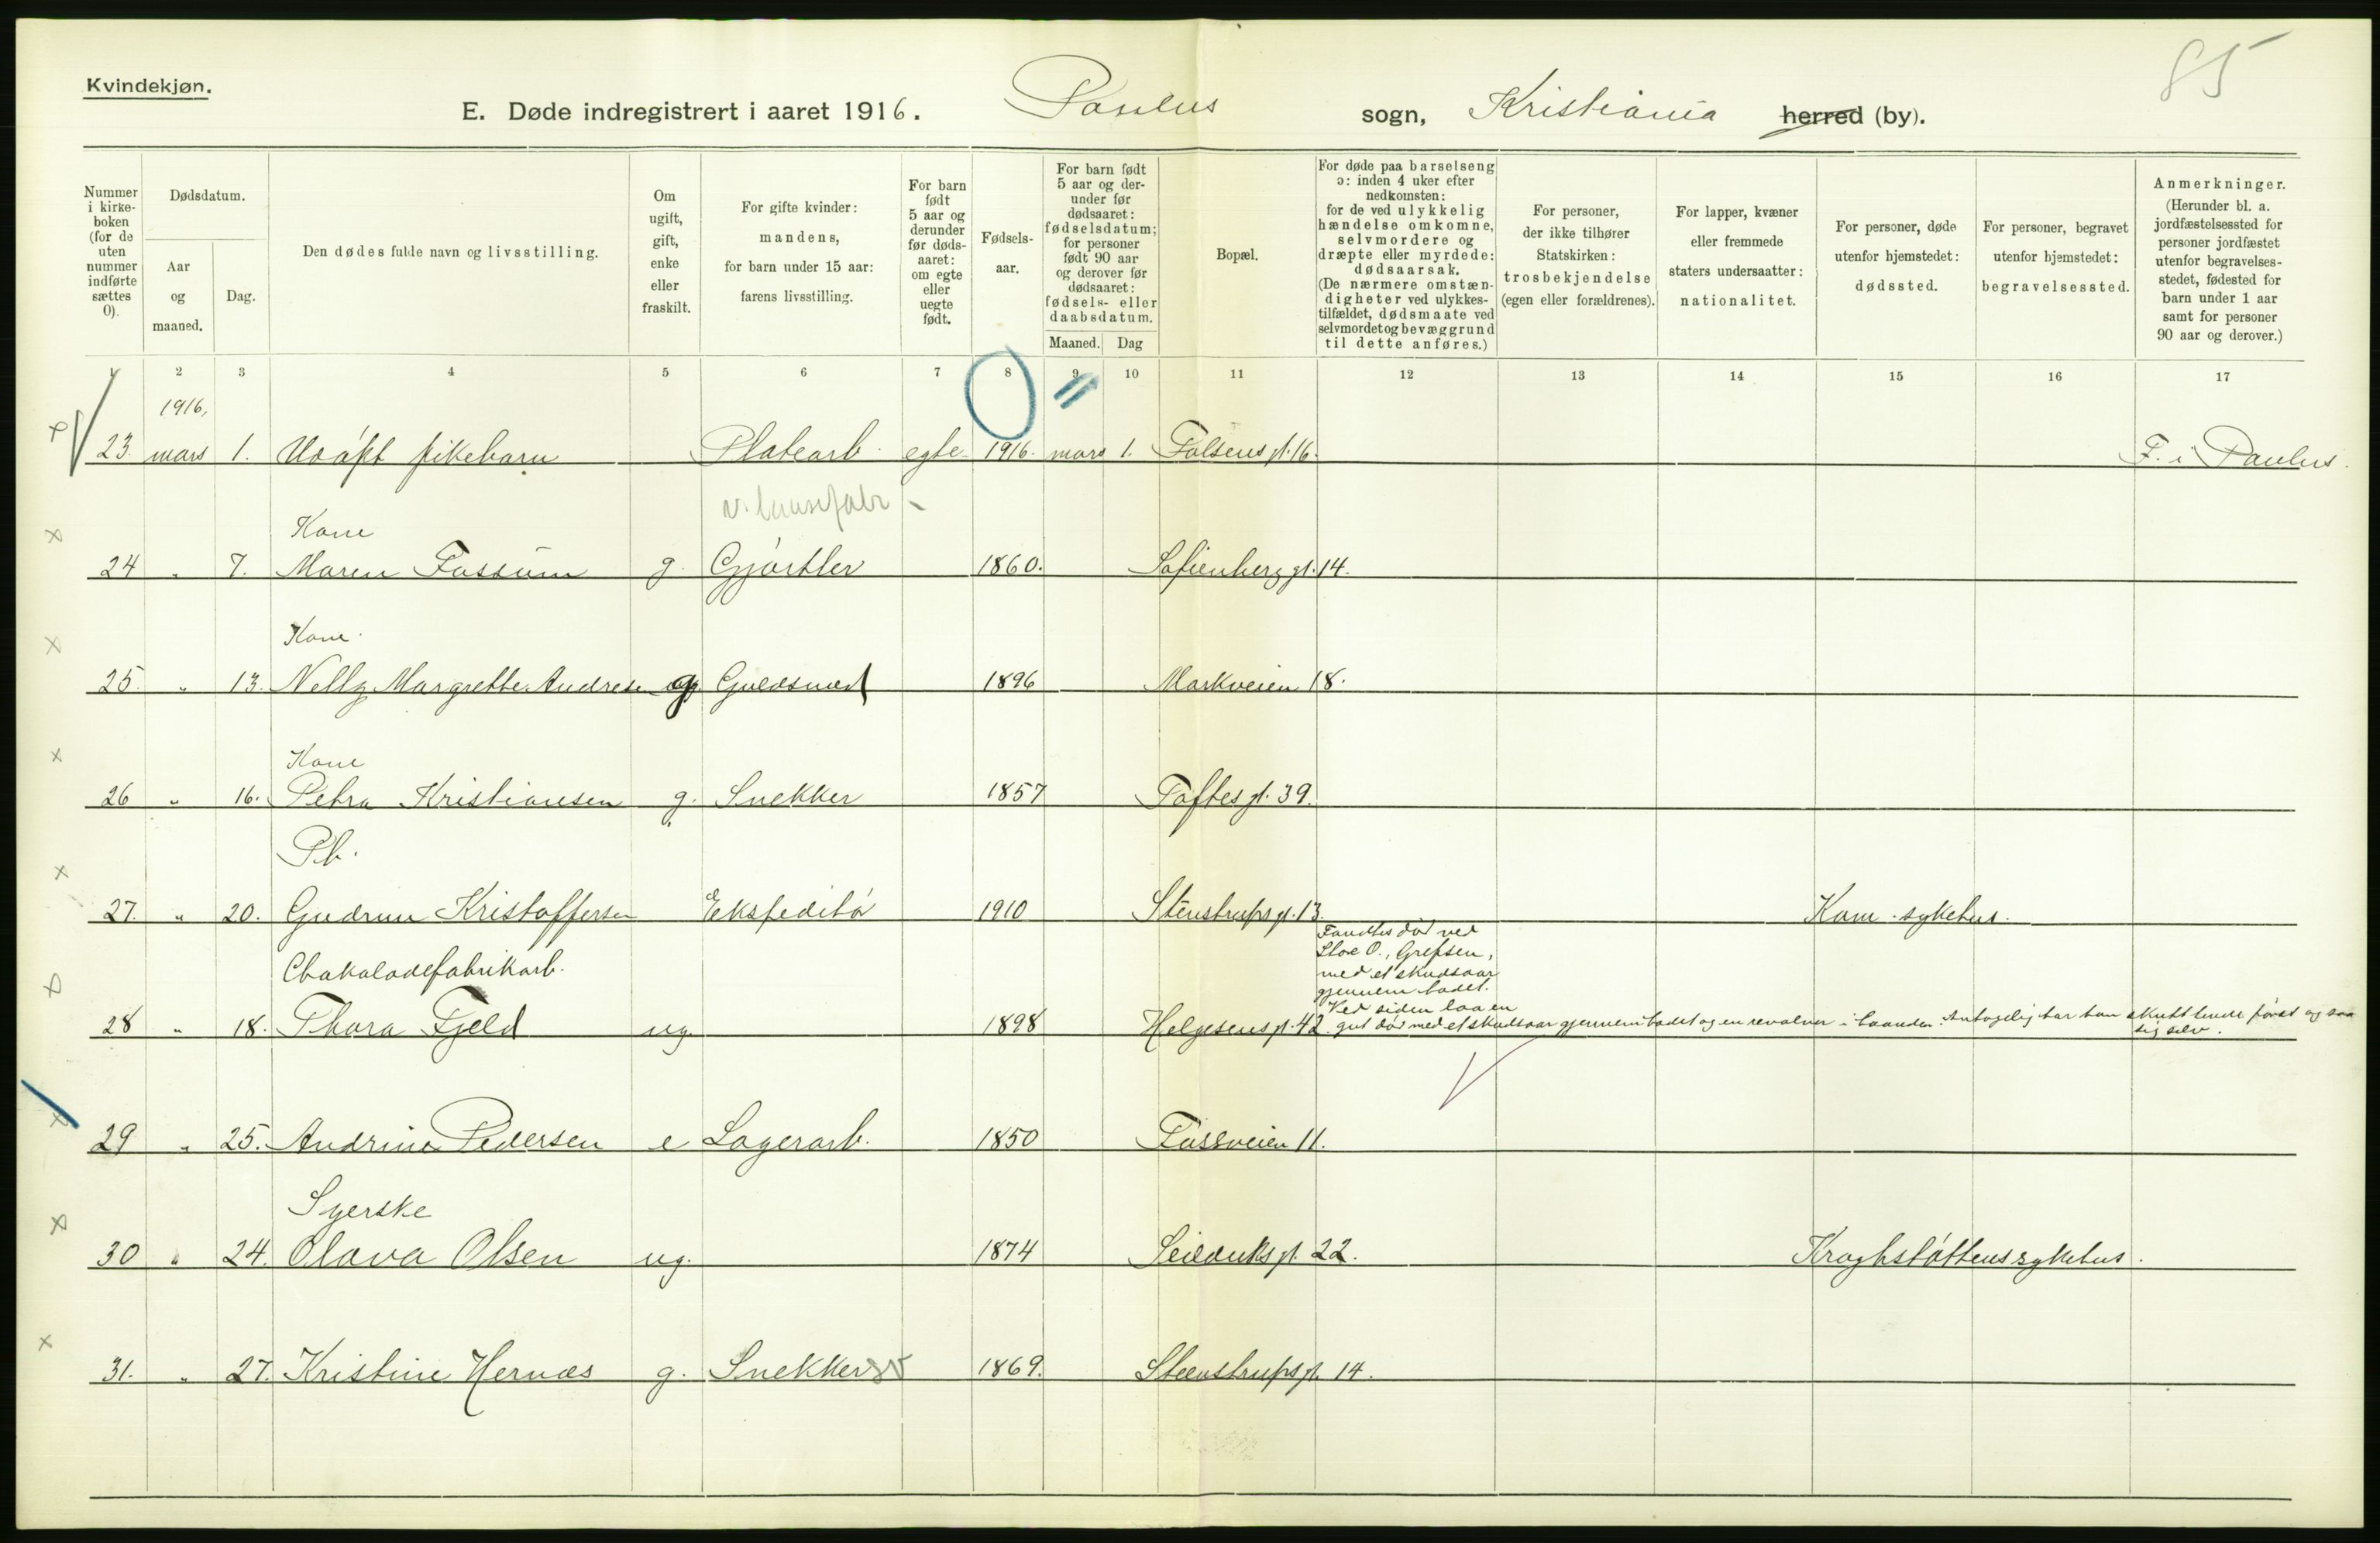 85
Kvindekjøn.
E. Døde indregistrert i aaret 1916. Paulus sogn, Kristiania herred (by).
Nummer i kirke-boken (for de uten nummer indførte sættes 0).
Dødsdatum.
Aar og maaned.
Dag.
Den dødes fulde navn og livsstilling.
Om ugift, gift, enke eller fraskilt.
For gifte kvinder: mandens, for barn under 15 aar: farens livsstilling.
For barn født 5 aar og derunder før døds-aaret: om egte eller uegte født.
Fødsels-aar.
For barn født 5 aar og der-under før dødsaaret: fødselsdatum; for personer født 90 aar og derover før dødsaaret: fødsels- eller daabsdatum.
Maaned. Dag
Bopæl.
For døde paa barselseng ɔ: inden 4 uker efter nedkomsten: for de ved ulykkelig hændelse omkomne, selvmordere og dræpte eller myrdede: dødsaarsak. (De nærmere omstæn-digheter ved ulykkes-tilfældet, dødsmaate ved selvmordet og bevæggrund til dette anføres.)
For personer, der ikke tilhører Statskirken: trosbekjendelse (egen eller forældrenes).
For lapper, kvæner eller fremmede staters undersaatter: nationalitet.
For personer, døde utenfor hjemstedet: dødssted.
For personer, begravet utenfor hjemstedet: begravelsessted.
Anmerkninger. (Herunder bl. a. jordfæstelsessted for personer jordfæstet utenfor begravelses-stedet, fødested for barn under 1 aar samt for personer 90 aar og derover.)
1 2 3 4 5 6 7 8 9 10 11 12 13 14 15 16 17
1916.
23 mars 1. Udøpt pikebarn Platearb. egte 1916. mars 1. Falsens gt. 16. F. i Paulus.
Kone
24 " 7. Maren Fossum g. Gjørtler 1860. Sofienberg gt. 14.
Kone
25 " 13. Nelly Margrethe Andresen g. Guldsmed 1896 Markveien 18.
Kone
26 " 16. Petra Kristiansen g. Snekker 1857 Toftes gt. 39.
Pb.
27. " 20. Gudrun Kristoffersen Ekspeditør 1910 Stenstrups gt. 13. Kom. sykehus.
Chokoladefabrikarb.
Fandtes død ved
Store O., Grefsen,
med et skudsaar
gjennem hodet.
Ved siden laa en
28 " 18. Thora Fjeld ug. 1898 Helgesens gt. 42. gut død med et skudsaar gjennem hodet og en revolver i haanden. Antagelig har han skutt hende først og saa
sig selv.
29 " 25. Andrine Pedersen e Lagerarb. 1850 Fossveien 11.
Syerske
30 " 24. Olava Olsen ug. 1874 Seilduks gt. 22. Kroghstøttens sykehus.
31. " 27. Kristine Hernæs g. Snekker 1869. Steenstrups gt. 14.